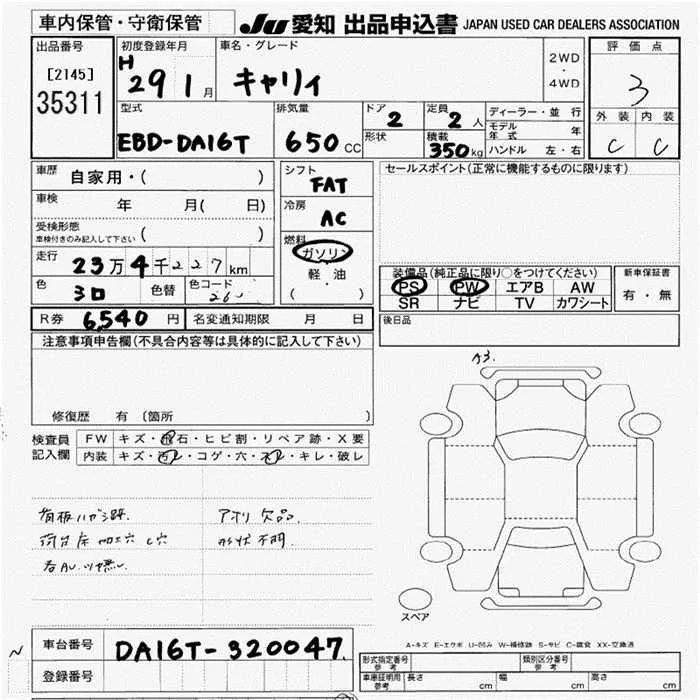 車内保管・守衛保管
JU 愛知 出品申込書 JAPAN USED CAR DEALERS ASSOCIATION
出品番号
[2145]
35311
初度登録年月
H
29 1 月
車名・グレード
キャリィ
2WD
・
4WD
評価点
3
外装 内装
C C
型式
EBD-DA16T
排気量
650 CC
ドア
2
形状
定員
2 人
積載
350 kg
ディーラー・並行
モデル年式 年
ハンドル 左・右
車歴 自家用・( )
車検 年 月( 日)
受検形態
車検付きのみ記入して下さい ( )
走行 23万4千227km
色 シロ 色替 色コード 26U
シフト
FAT
冷房
AC
燃料
ガソリン
軽・油
( )
セールスポイント(正常に機能するものに限ります)
装備品(純正品に限り○をつけてください)
PS PW エアB AW
SR ナビ TV カワシート
新車保証書
有・無
R券 6,540 円 名変通知期限 月 日
後日品
注意事項申告欄(不具合内容等は具体的に記入して下さい)
修復歴 有 〔箇所 〕
検査員
記入欄
FW キズ・飛石・ヒビ割・リペア跡・X要
内装 キズ・汚レ・コゲ・穴・スレ・キレ・破レ
看板ハガシ跡. アオリ 欠品.
荷台床 加工穴 ビ穴 形状 不明.
A3.
スペア
A-キズ E-エクボ U-凹み W-補修跡 S-サビ C-腐食 XX-交換済
車台番号 DA16T-320047.
登録番号
形式指定番号
参考
類別区分番号
参考
車庫証明用
参考
長さ cm 幅 cm 高さ cm